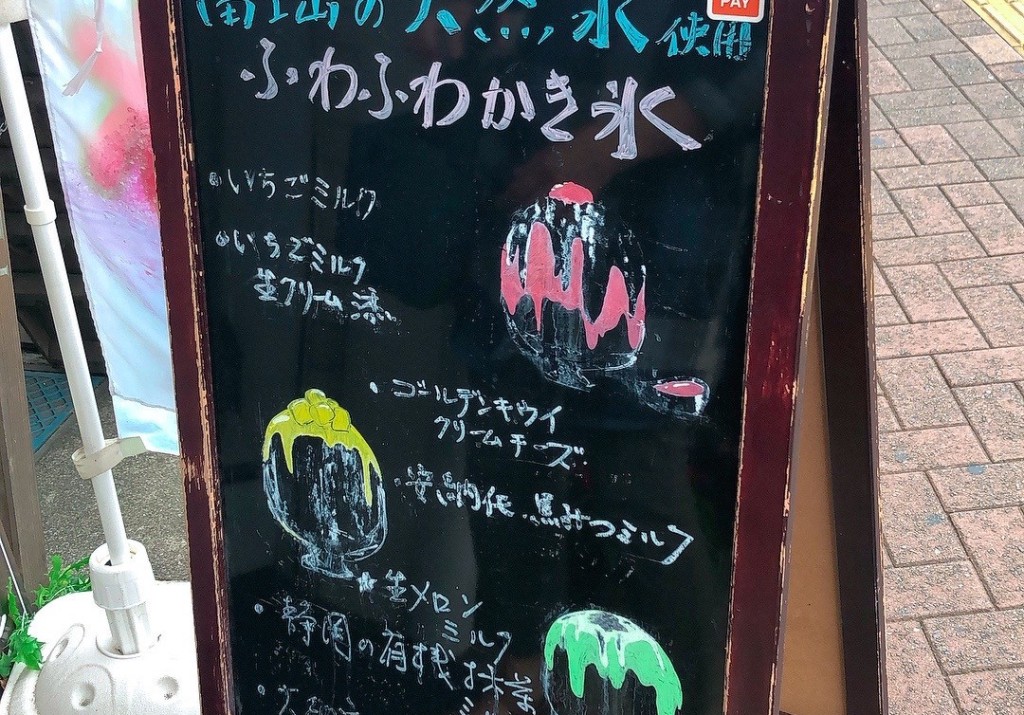 富士山の天然氷使用
PAY
ふわふわかき氷
•いちごミルク
•いちごミルク
生クリーム添
•ゴールデンキウイ
クリームチーズ
•安納芋、黒みつミルク
★生メロン
ミルク
•静岡の有機お抹茶